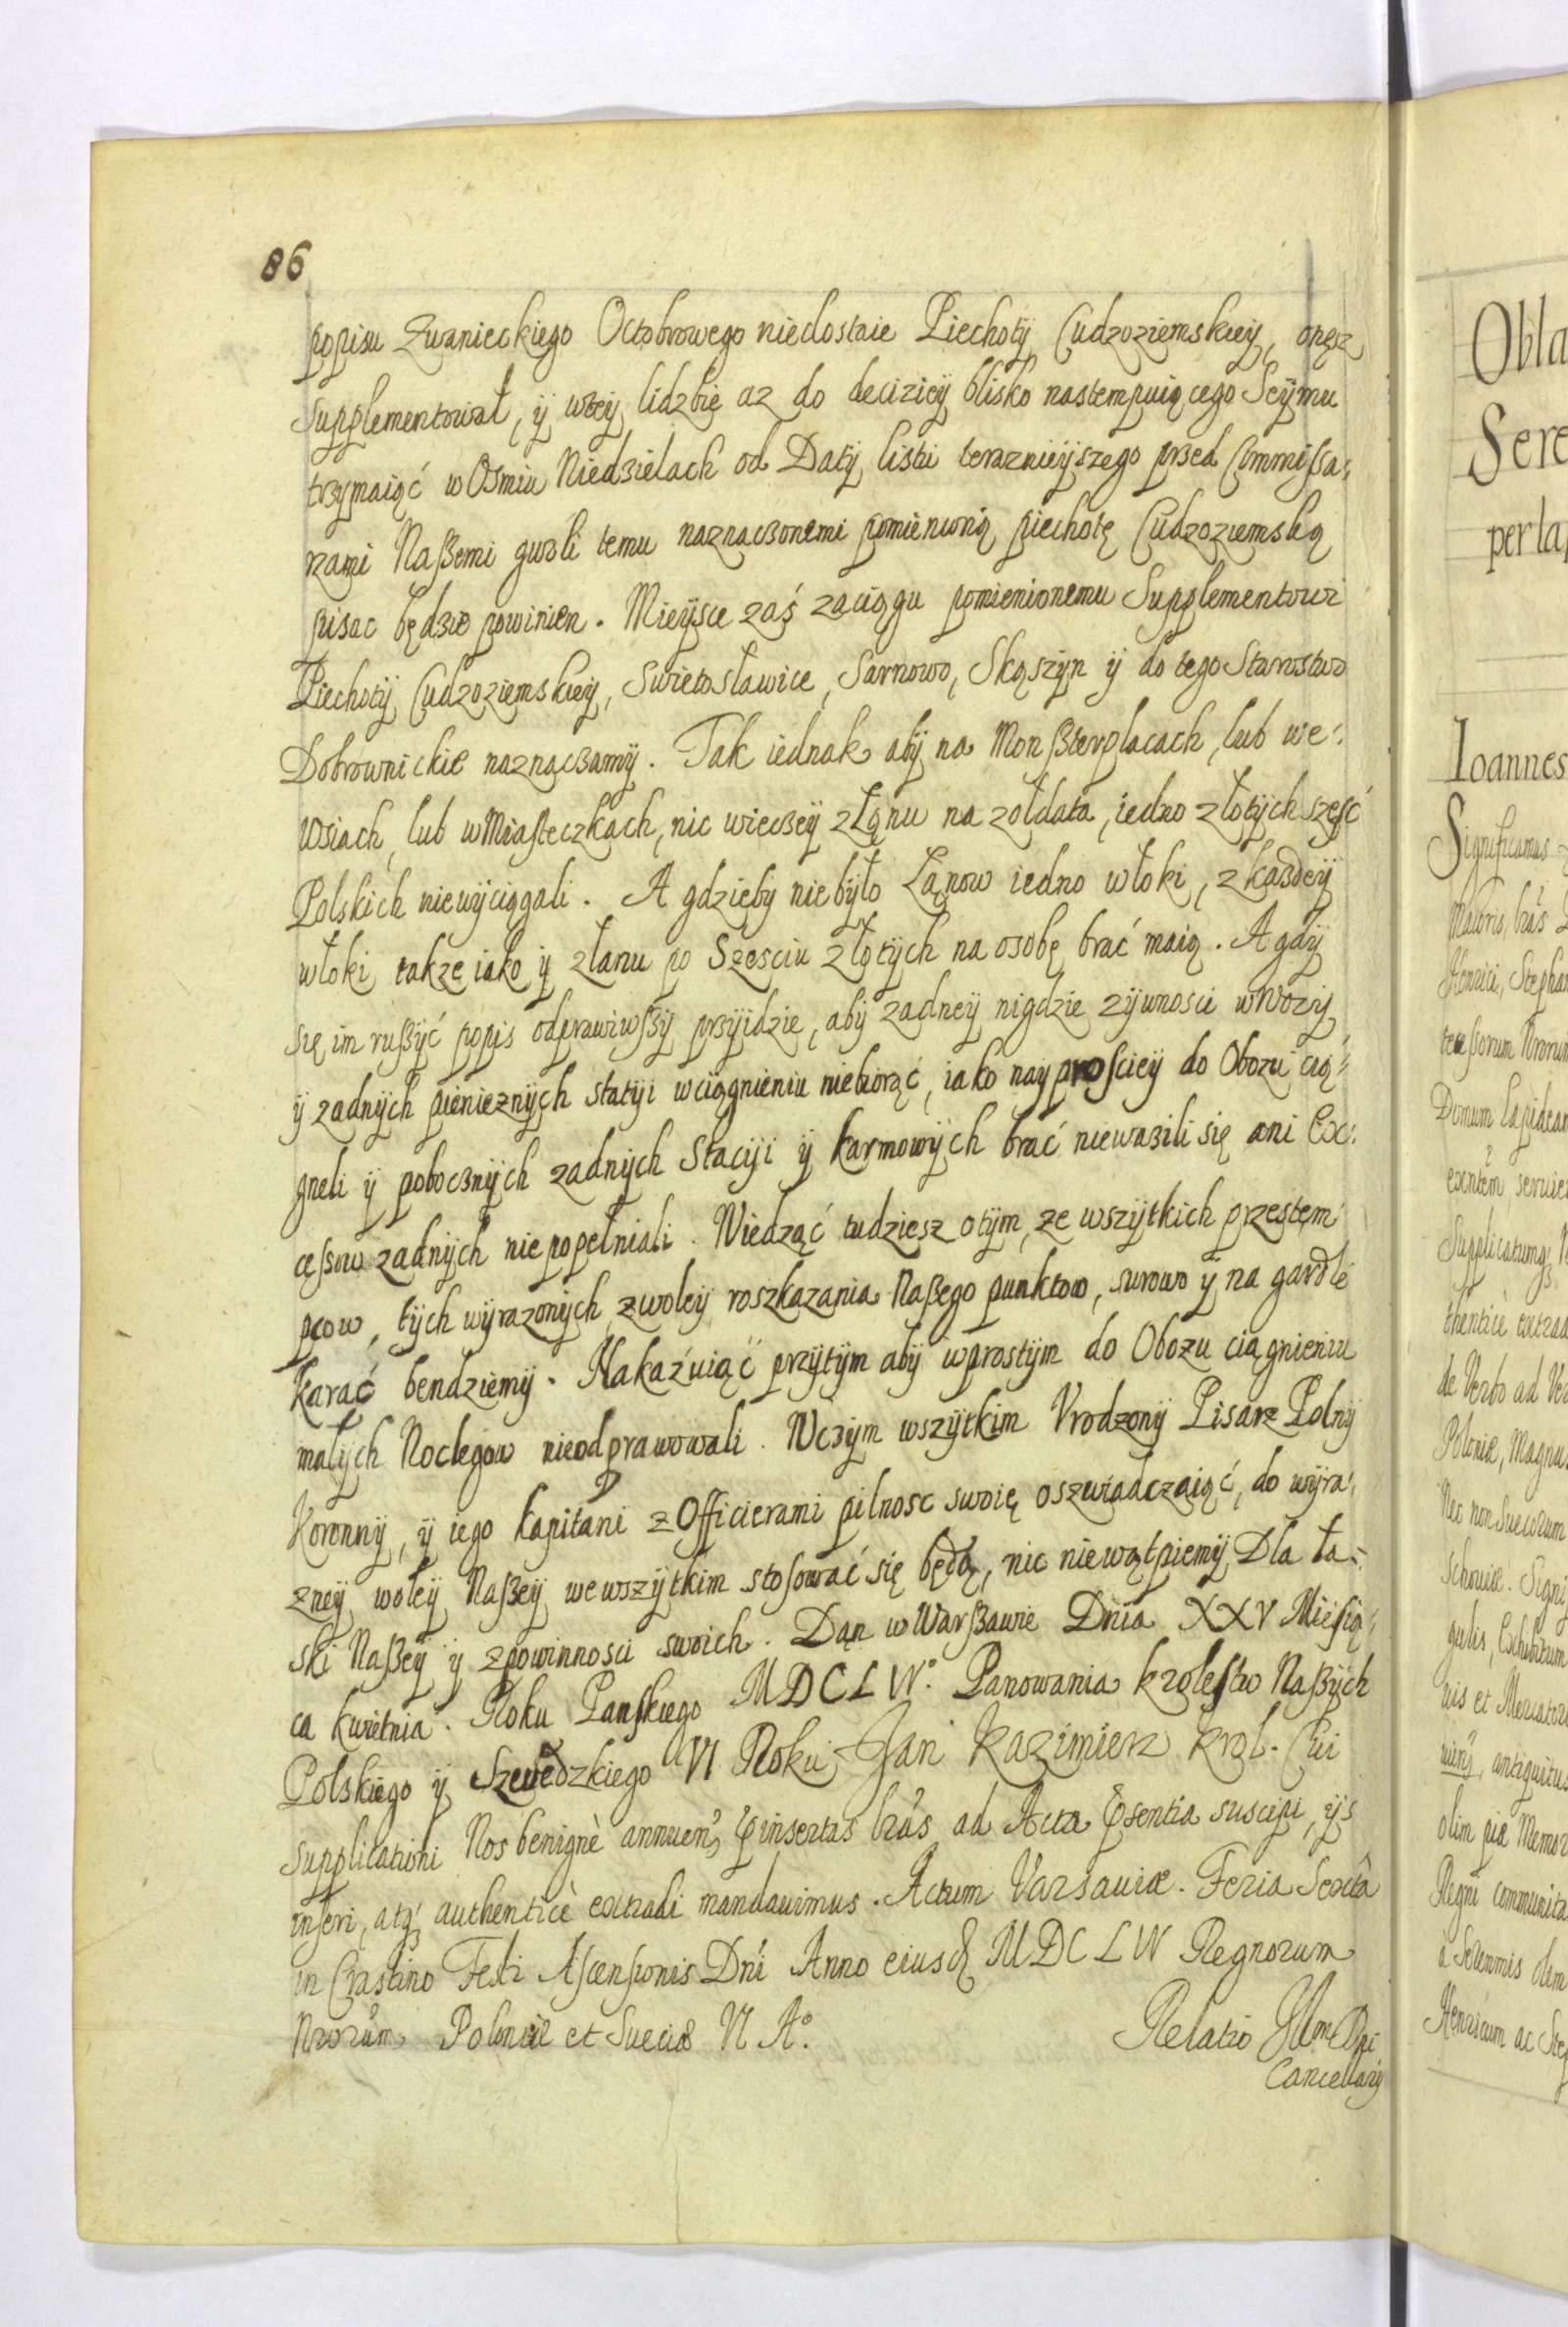 86
popisu Zwanieckiego Octobrowego niedostaie Piechotÿ Cudzoziemskieÿ,
Supplementował, ÿ wteÿ lidzbie az do decizieÿ blisko nastempuiącego Seÿmu
trzÿmaiąć w Osmiu Niedzielach od Datÿ listu teraznieÿszego przed Commissa-
rzami Naßemi gwoli temu naznaczonemi pomienioną piechotę Cudzoziemską
pisac będzie powinien. Mieÿsce zaś zaciągu pomienionemu Supplementowi
Piechotÿ Cudzoziemskieÿ, Swietosławice, Sarnowo, Skąszÿn ÿ do tego Starostwo
Dobrownickie naznaczamÿ. Tak iednak abÿ na Monßterplacach, lub we:
wsiach, lub w Miasteczkach, nic wieczeÿ złąnu na zołdata, iedno złotÿch szesć
Polskich niewÿciągali. A gdziebÿ niebÿło Łąnow iedno włoki, zkażdeÿ
włoki takze iako ÿ złanu po Szesciu złotÿch na osobę brać maią. A gdÿ
się im rußÿć popis odprawiwßÿ przÿidzie, abÿ zadneÿ nigdzie zÿwnosci w Wozÿ
ÿ zadnÿch pienieznÿch statÿi wciągnieniu niebiorąć, iako naÿprosciej do Obozu cią-
gneli ÿ pobocznÿch zadnÿch Staciji ÿ karmowÿch brać niewazili się ani Ex:
cessow zadnÿch niepopełniali. Wiedząć tudziesz otÿm, ze wszÿtkich przestem
pcow, tÿch wÿrazonÿch zwoleÿ roszkazania Naßego punktow, surowo ÿ na gardle
karać bendziemÿ. Nakazuiąć przÿtÿm abÿ wprostÿm do Obozu ciągnieniu
małÿch Noclegow nieodprawowali. Wczÿm wszÿtkim Vrodzonÿ Pisarz Polnÿ
Koronnÿ, ÿ iego kapitani z Officierami pilnosc swoię oszwiadczaiąć, do wÿra-
zneÿ woleÿ Naßeÿ we wszÿtkim stosować się będą, nic niewątpiemÿ Dla ła-
ski Naßeÿ ÿ zpowinnosci swoich. Dąn w Warßawie Dnia XXV Miesią-
ca kwietnia. Roku Panskiego MDCLIV° Panowania krolestw Naßÿch
Polskiego ÿ Szwedzkiego VI Roku Jan Kazimierz Krol. Cui
supplicationi Nos benignè annuen̄, p̱insertas lr̄as ad Acta p̱sentia suscipi, ijs
inseri, atq́ authenticè extradi mandauimus. Actum Varsauiæ. Feria Sexta
in Crastino Festi Ascensionis Dn̄i Anno eiusđ MDCLIV Regnorum
Nrorum Poloniæ et Sueciæ VI A°.
Relatio Illm̄i Dn̄i
Cancellarij
Obla
Sere
per la
Ioannes
Significamus
Maioris
Henrici, Stephan
Domum lapidean
Supplicatumq
de Verbo ad Ver
Poloniæ, Magnu
Nec non Suecorum
gulis, Exhibitum
uis et Mercator
antiquitus
olim piæ Memor
Regni communita
Henricum ac Step